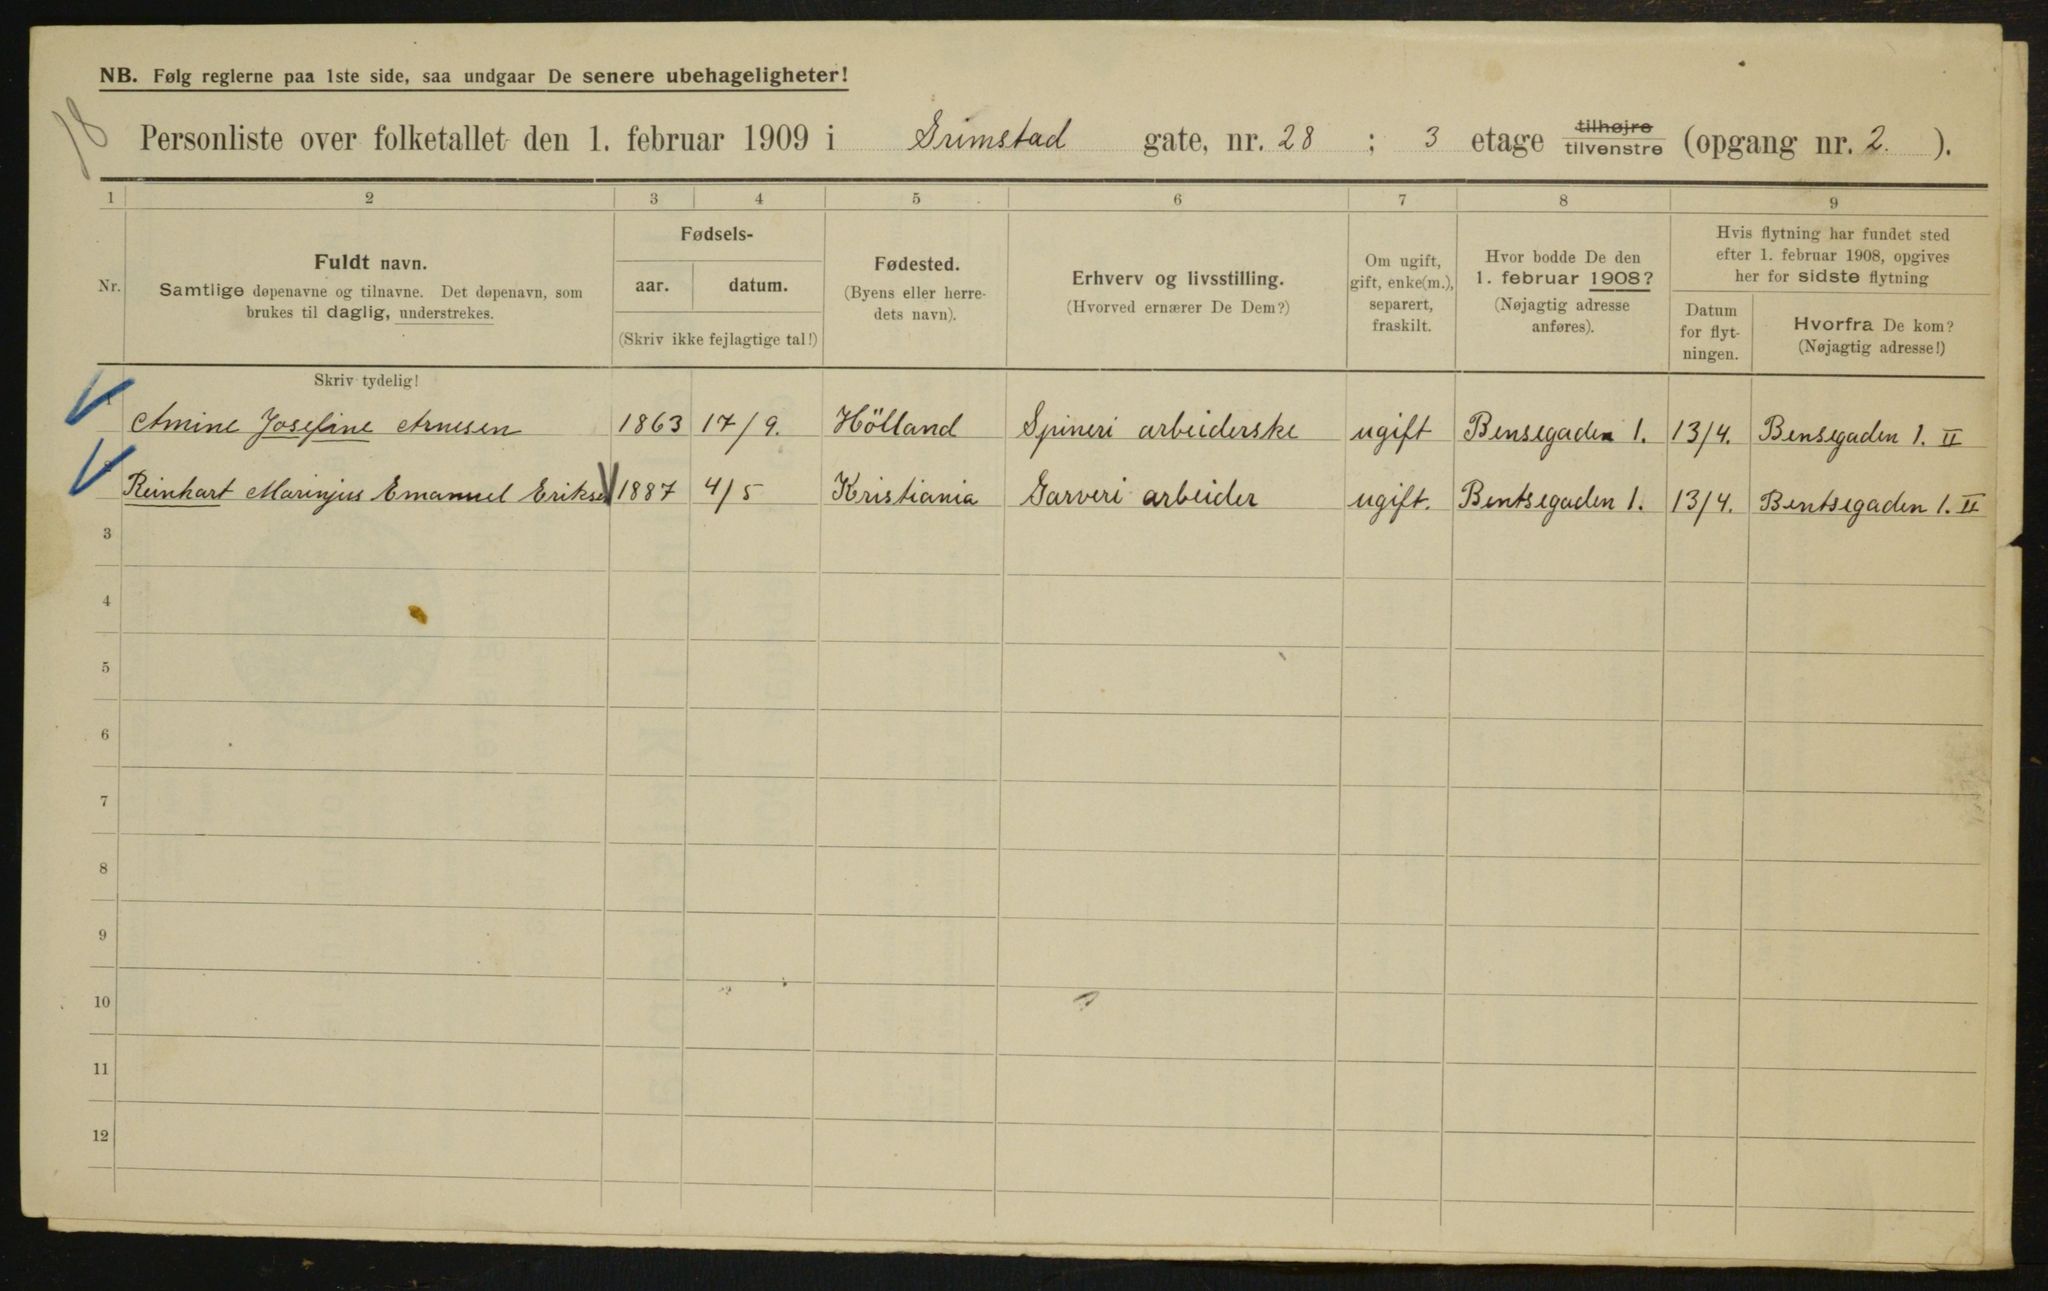 NB. Følg reglerne paa 1ste side, saa undgaar De senere ubehageligheter!
18
Personliste over folketallet den 1. februar 1909 i Grimstad gate, nr. 28 ; 3 etage tilhøjre tilvenstre (opgang nr. 2. ).
1 2 3 4 5 6 7 8 9
Nr.
Fuldt navn.
Samtlige døpenavne og tilnavne. Det døpenavn, som
brukes til daglig, understrekes.
Fødsels-
aar. datum.
(Skriv ikke fejlagtige tal!)
Fødested.
(Byens eller herre-
dets navn).
Erhverv og livsstilling.
(Hvorved ernærer De Dem?)
Om ugift,
gift, enke(m.),
separert,
fraskilt.
Hvor bodde De den
1. februar 1908?
(Nøjagtig adresse
anføres).
Hvis flytning har fundet sted
efter 1. februar 1908, opgives
her for sidste flytning
Datum
for flyt-
ningen.
Hvorfra De kom?
(Nøjagtig adresse!)
Skriv tydelig!
1 Amine Josefine Arnesen 1863 17/9. Hölland Spineri arbeiderske ugift Bensegaden 1. 13/4. Bensegaden 1. II
2 Reinhart Marinjus Emanuel Erikse 1887 4/5 Kristiania Garveri arbeider ugift. Bentsegaden 1. 13/4. Bentsegaden 1. II
3
4
5
6
7
8
9
10
11
12